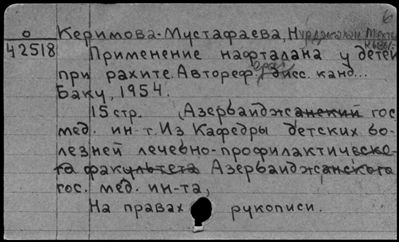 о Керимова-Мустафаева, Н
42518 Применение нафталана у детей
при рахите. Автореф. дисс. канд...
Баку, 1954.
15 стр. Азербайджанский гос
мед. ин-т. Из Кафедры детских бо-
лезней лечебно-профилактическо-
го факультета Азербайджанского
гос. мед. ин-та,
На правах рукописи.